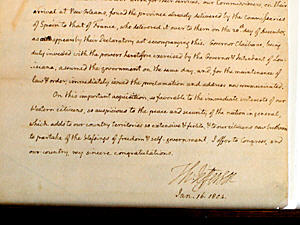 for their services, our Commissioners, on their
arrival at New Orleans, found the province already delivered by the Commissaries
of Spain to that of France, who delivered it over to them on the 20th day of December,
as appears by their Declaratory act accompanying this. Governor Claiborne, being
duly invested with the powers heretofore exercised by the Governor & Intendant of Lou-
isiana, assumed the government on the same day, and for the maintenance
of law & order, immediately issued the proclamation and address now communicated.
On this important acquisition, so favorable to the immediate interests of our
Western citizens, so auspicious to the peace and security of the nation in general,
which adds to our country territories so extensive & fertile, & to our citizens new brethren
to partake of the blessings of freedom & self-government, I offer to Congress, and
our country, my sincere congratulations.
Th: Jefferson
Jan. 16. 1804.